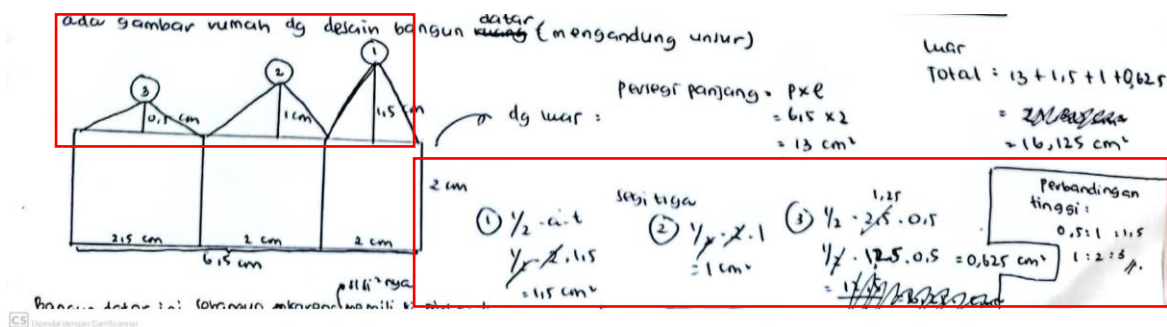 ada gambar rumah dg desain bangun datar (mengandung unsur)
1
2
3
0,5 cm
1 cm
1,5 cm
2 cm
2,5 cm
2 cm
2 cm
6,5 cm
dg luas :
Persegi panjang = p x l
= 6,5 x 2
= 13 cm²
Luas
Total = 13 + 1,5 + 1 + 0,625
= 16,125 cm²
segitiga
1 1/2 . a . t
1/2 . 2 . 1,5
= 1,5 cm²
2 1/2 . 2 . 1
= 1 cm²
1,25
3 1/2 . 2,5 . 0,5
1/2 . 1,25 . 0,5 = 0,625 cm²
Perbandingan
tinggi :
0,5 : 1 : 1,5
1 : 2 : 3 //.
sisi² nya
Bangun datar ini
CS Dipindai dengan CamScanner